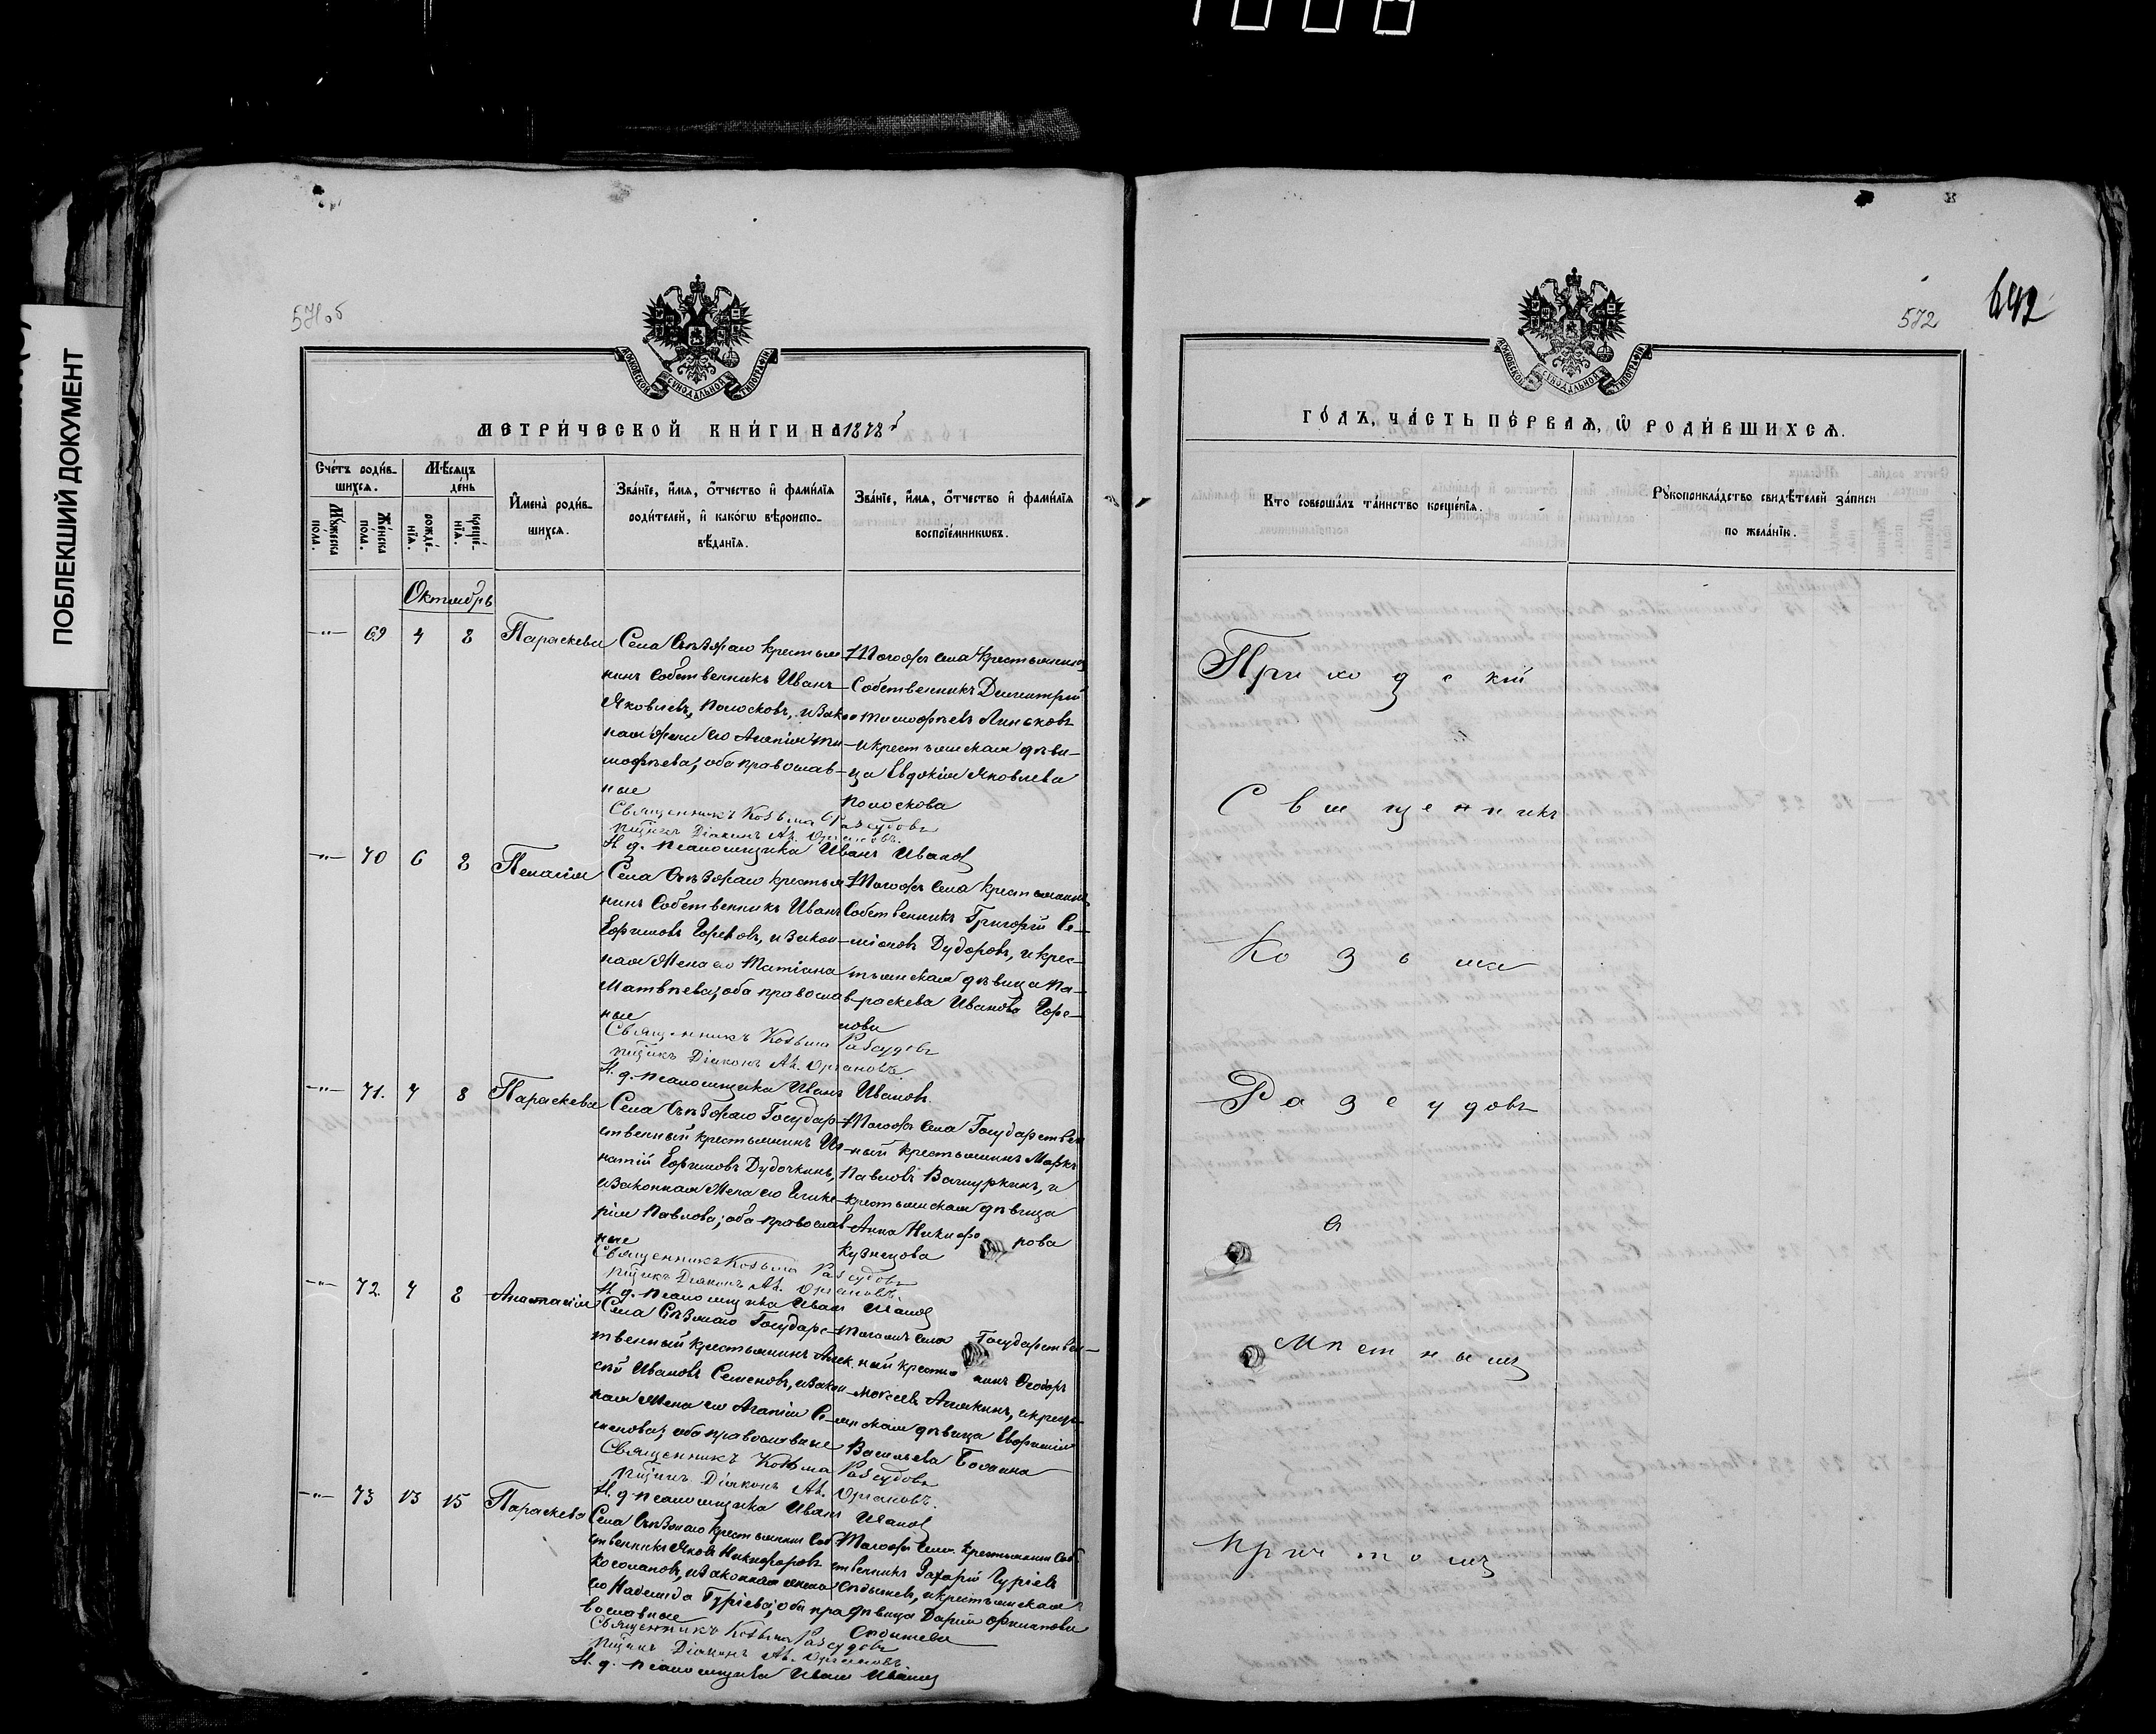 ПОБЛЕКШИЙ ДОКУМЕНТ
571 об
МОСКОВСКОЙ СѴНОДАЛЬНОЙ ТИПОГРАФІИ
МЕТРИ́ЧЕСКОЙ КНИ́ГИ НА 1878
Сче́тъ роди́в-
шихсѧ.
Мѣсѧцъ
де́нь
Мꙋ́жеска
по́ла.
Же́нска
по́ла.
рожде́-
нїѧ.
креще́-
нїѧ.
И҆мена̀ роди́в-
шихсѧ.
Зва́нїе, и҆́мѧ, ѻ҆́тчество и҆ фами́лїѧ
роди́телей, и҆ како́гѡ вѣроиспо-
вѣ́данїѧ.
Зва́нїе, и҆́мѧ, ѻ҆́тчество и҆ фами́лїѧ
воспрїе́мникѡвъ.
Октябрь
69 4 8 Параскева
Села Съѣзжаго крестья-
нинъ Собственникъ Иванъ
Яковлевъ Полосковъ, и закон
ная жена его
мофѣева; оба православ-
ные
Тогожъ села крестьянинъ
Собственникъ Димитрій
Тимофѣевъ Линьковъ
и крестьянская дѣви-
ца Евдокія Яковлева
Полоскова
Священникъ Козьма Разсудовъ
Діаконъ Ал. Органовъ.
И. д. псаломщика Иванъ Ивановъ
70 6 8 Пелагія
Села Съѣзжаго крестья
нинъ Собственникъ Иванъ
Ефимовъ Горшовъ, и закон-
ная жена его Татіана
Матвѣева; оба православ-
ные
Тогожъ села крестьянинъ
Собственникъ Григорій Се-
міоновъ Дудоровъ, и крес-
тьянская дѣвица Па-
раскева Иванова Горш-
нова
Священникъ Козьма Разсудовъ
Діаконъ Ал. Органовъ.
И. д. псаломщика Иванъ Ивановъ
71. 7 8 Параскева
Села Съѣзжаго Государ-
ственный крестьянинъ Иг-
натій Ефимовъ Дудочкинъ,
и законная жена его Глике-
рія Павлова; оба православ
ные
Тогожъ села Государствен
ный крестьянинъ Маркъ
Павловъ Вачуркинъ, и
крестьянская дѣвица
Анна Никифорова
Кузнецова
Священникъ Козьма Разсудовъ
Діаконъ Ал. Органовъ.
И. д. псаломщика Иванъ Ивановъ
72 7 8 Анастасія
Села Съѣзжаго Государс-
твенный крестьянинъ Алек
сѣй Ивановъ Семеновъ, и закон
ная жена его Агапія Се-
менова; оба православные
Тогожъ села Государствен-
ный крестьянинъ Ѳеодоръ
Моисеевъ Алякинъ, и крест-
янская дѣвица Евфимія
Васильева
Священникъ Козьма Разсудовъ
Діаконъ Ал. Органовъ.
И. д. псаломщика Иванъ Ивановъ
73 13 15 Параскева
Села Съѣзжаго крестьянинъ Соб
ственникъ Яковъ Никифоровъ
Косолаповъ, и законная жена
его Надежда Гуріева; оба пра
вославные
Тогожъ села крестьянинъ Соб
ственникъ Захарій Гуріевъ
Сѣдышевъ, и крестьянская
дѣвица Дарія Филиппова
Сѣдышева
Священникъ Козьма Разсудовъ
Діаконъ Ал. Органовъ.
И. д. псаломщика Иванъ Ивановъ
572
692
МОСКОВСКОЙ СѴНОДАЛЬНОЙ ТИПОГРАФІИ
ГО́ДЪ, ЧА́СТЬ ПЕ́РВАѦ, Ѽ РОДИ́ВШИХСѦ.
Кто соверша́лъ та́инство креще́нїѧ.
Рꙋкоприкла́дство свидѣ́телей за́писи
по жела́нїю.
Приходскій
Священникъ
Козьма
Разсудовъ
съ
мѣстнымъ
причтомъ